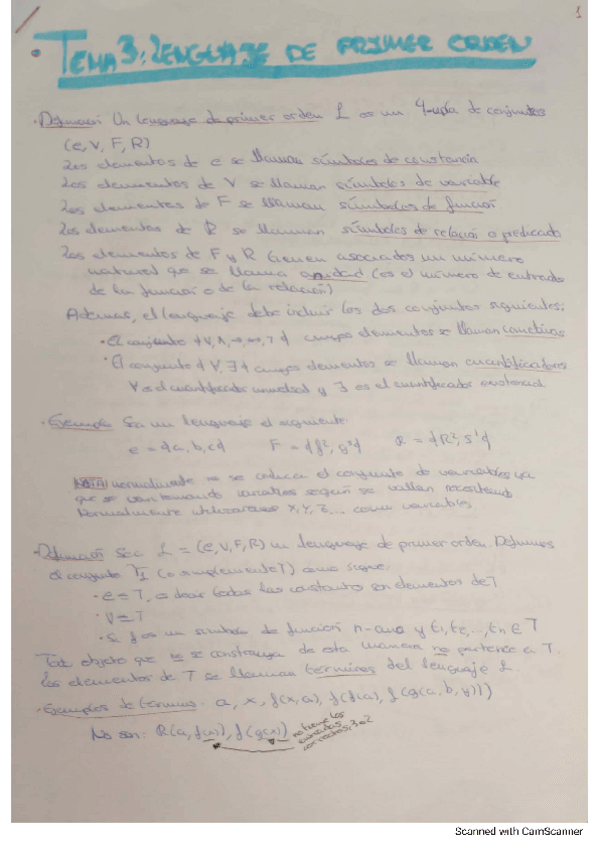 1
• TEMA 3: LENGUAJE DE PRIMER ORDEN
• Definición Un lenguaje de primer orden L es un 4-upla de conjuntos
(C, V, F, R)
Los elementos de C se llaman símbolos de constancia
Los elementos de V se llaman símbolos de variable
Los elementos de F se llaman símbolos de función
Los elementos de R se llaman símbolos de relación o predicado
Los elementos de F y R tienen asociados un número
natural que se llama aridad (es el número de entradas
de la función o de la relación)
Además, el lenguaje debe incluir los dos conjuntos siguientes:
• El conjunto {∨, ∧, →, ↔, ¬} cuyos elementos se llaman conectivas
• El conjunto {∀, ∃} cuyos elementos se llaman cuantificadores
∀ es el cuantificador universal y ∃ es el cuantificador existencial
• Ejemplo Sea un lenguaje el siguiente:
C = {a, b, c} F = {f², g³} R = {R², S¹}
NOTA: normalmente no se coloca el conjunto de variables ya
que se van tomando variables según se vallan necesitando
Normalmente utilizaremos X, Y, Z... como variables
• Definición Sea L = (C, V, F, R) un lenguaje de primer orden. Definimos
el conjunto (o simplemente T) como sigue:
• es decir todas las constantes son elementos de T
• Si f es un símbolo de función n-ario y t₁, t₂, ..., tₙ ∈ T
Todo objeto que no se construya de esta manera no pertenece a T.
Los elementos de T se llaman términos del lenguaje L
• Ejemplos de términos: a, x, f(x,a), f(f(a), f(g(a, b, y)))
No son: R(a, f(x)), f(g(x)) no tiene las
entradas
correctas, 3 o 2
Scanned with CamScanner